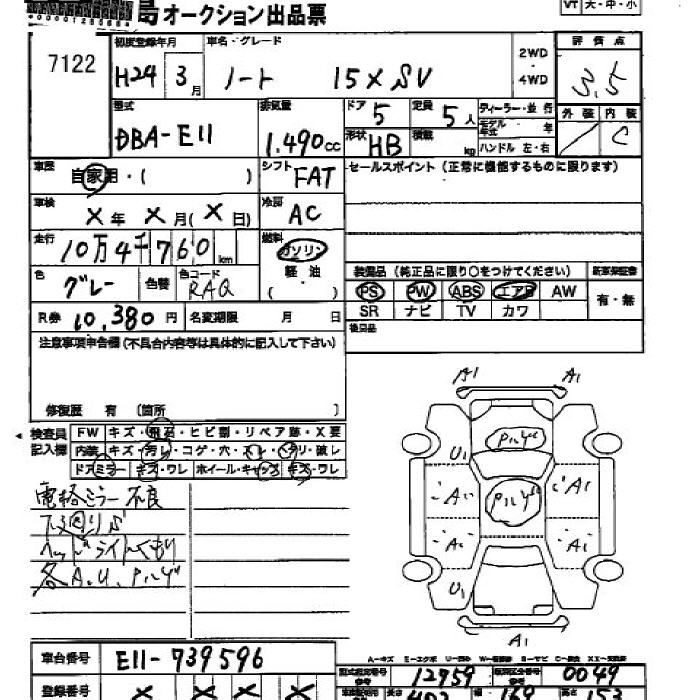 島オークション出品票
VT 大・中・小
7122
初度登録年月 車名・グレード
H24 3月 ノート 15X SV
2WD・4WD
評価点
3.5
型式 排気量 ドア 定員 ディーラー・並行
DBA-E11 1,490cc 5 5人
モデル年式 年
形状 HB 積載 kg ハンドル 左・右
外装 内装
/ C
車歴 自家用・( )
シフト FAT
セールスポイント (正常に機能するものに限ります)
車検 X年 X月 (X日)
冷房 AC
走行 10万4千760km
燃料 ガソリン
軽油
( )
色 グレー 色替 色コード RAQ
装備品 (純正品に限り○をつけてください) 新車保証書
PS PW ABS エアB AW 有・無
SR ナビ TV カワ
R券 10,380円 名変期限 月 日
後日品
注意事項申告欄 (不具合内容等は具体的に記入して下さい)
修復歴 有 〔箇所 〕
検査員記入欄
FW キズ・飛石・ヒビ割・リペア跡・X要
内装 キズ・汚レ・コゲ・穴・スレ・ヘタリ・破レ
ドアミラー キズ・ワレ ホイール・キャップ キズ・ワレ
電格ミラー不良
下回りサビ
ヘッドライトくもり
各A.U.Pハゲ
A1 A1
Pハゲ
U1
A1 Pハゲ A1
A1 A1
U1
A1
A-キズ E-エクボ U-凹み W-補修跡 S-サビ C-腐食 XX-交換済
車台番号 E11-739596
型式指定番号 12959 類別区分番号 0049
登録番号 X X X X
長さ 402 幅 169 高さ 153